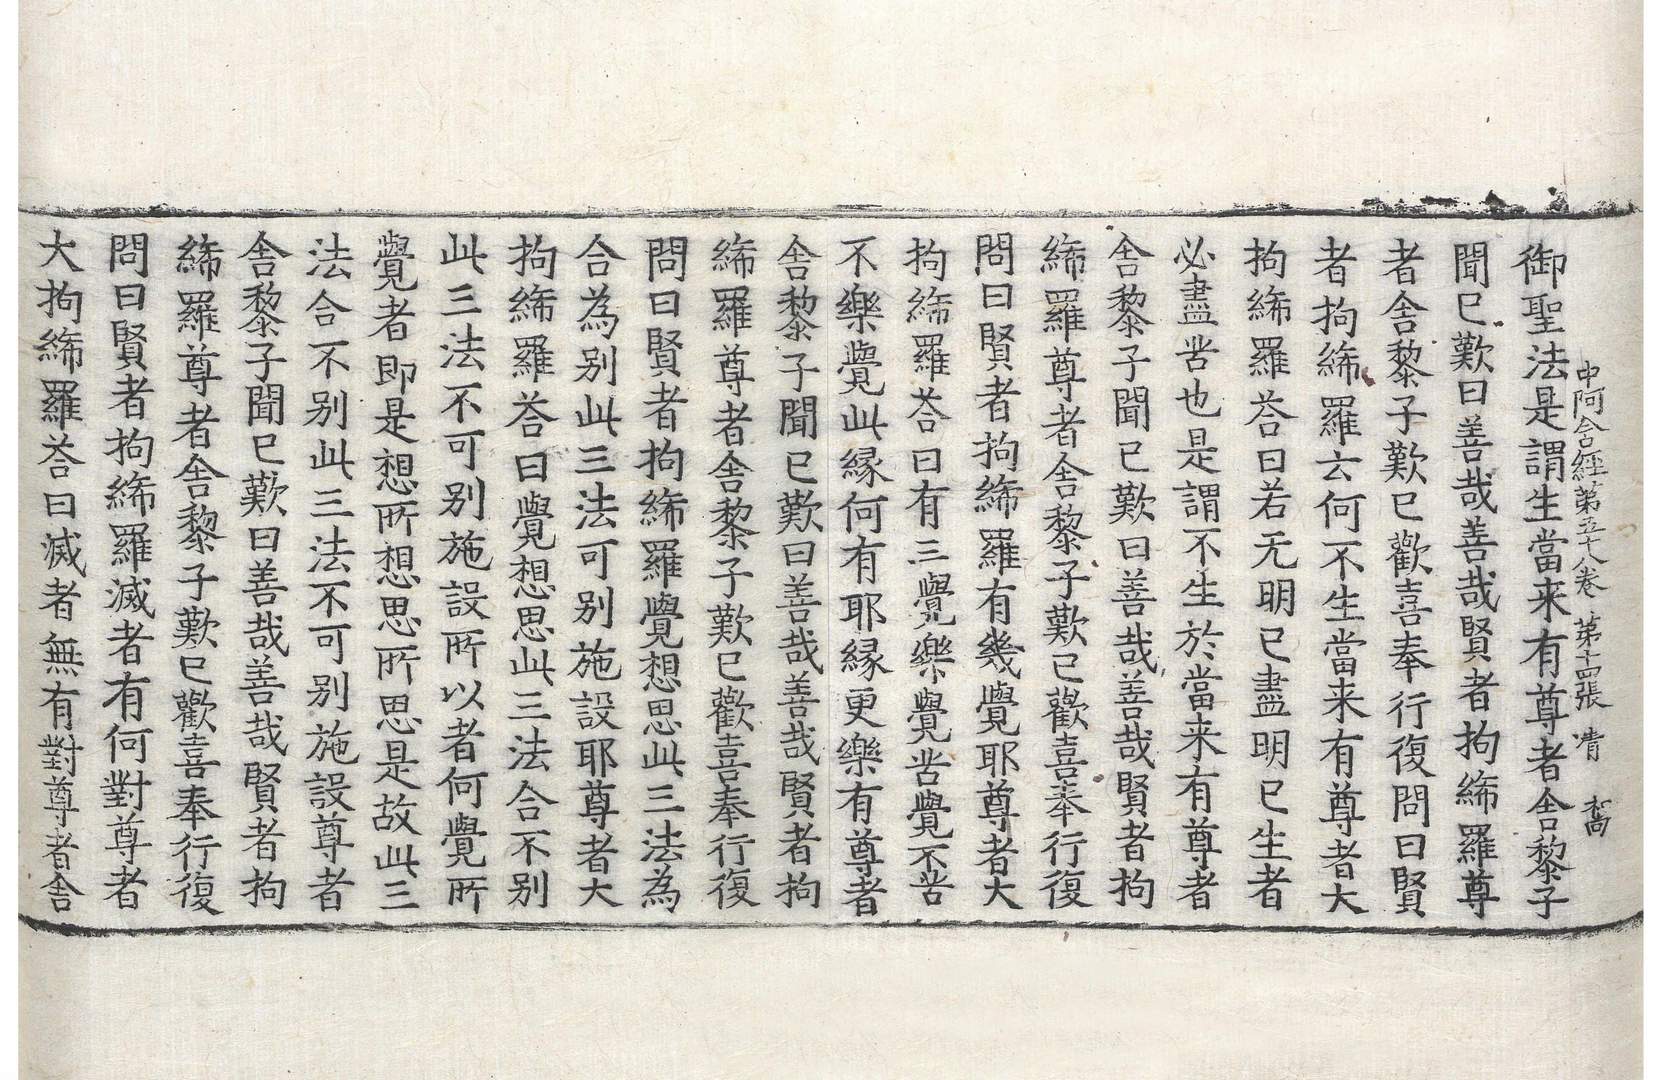 中阿含經第五十八卷 第十四張 清 寫
御聖法是謂生當来有尊者舍黎子
聞已歎曰善哉善哉賢者拘絺羅尊
者舍黎子歎已歡喜奉行復問曰賢
者拘絺羅云何不生當来有尊者大
拘絺羅荅曰若无明已盡明已生者
必盡苦也是謂不生於當来有尊者
舍黎子聞已歎曰善哉善哉賢者拘
絺羅尊者舍黎子歎已歡喜奉行復
問曰賢者拘絺羅有幾覺耶尊者大
拘絺羅荅曰有三覺樂覺苦覺不苦
不樂覺此縁何有耶縁更樂有尊者
舍黎子聞已歎曰善哉善哉賢者拘
絺羅尊者舍黎子歎已歡喜奉行復
問曰賢者拘絺羅覺想思此三法為
合為别此三法可别施設耶尊者大
拘絺羅荅曰覺想思此三法合不别
此三法不可别施設所以者何覺所
覺者即是想所想思所思是故此三
法合不别此三法不可别施設尊者
舍黎子聞已歎曰善哉善哉賢者拘
絺羅尊者舍黎子歎已歡喜奉行復
問曰賢者拘絺羅滅者有何對尊者
大拘絺羅荅曰滅者無有對尊者舍